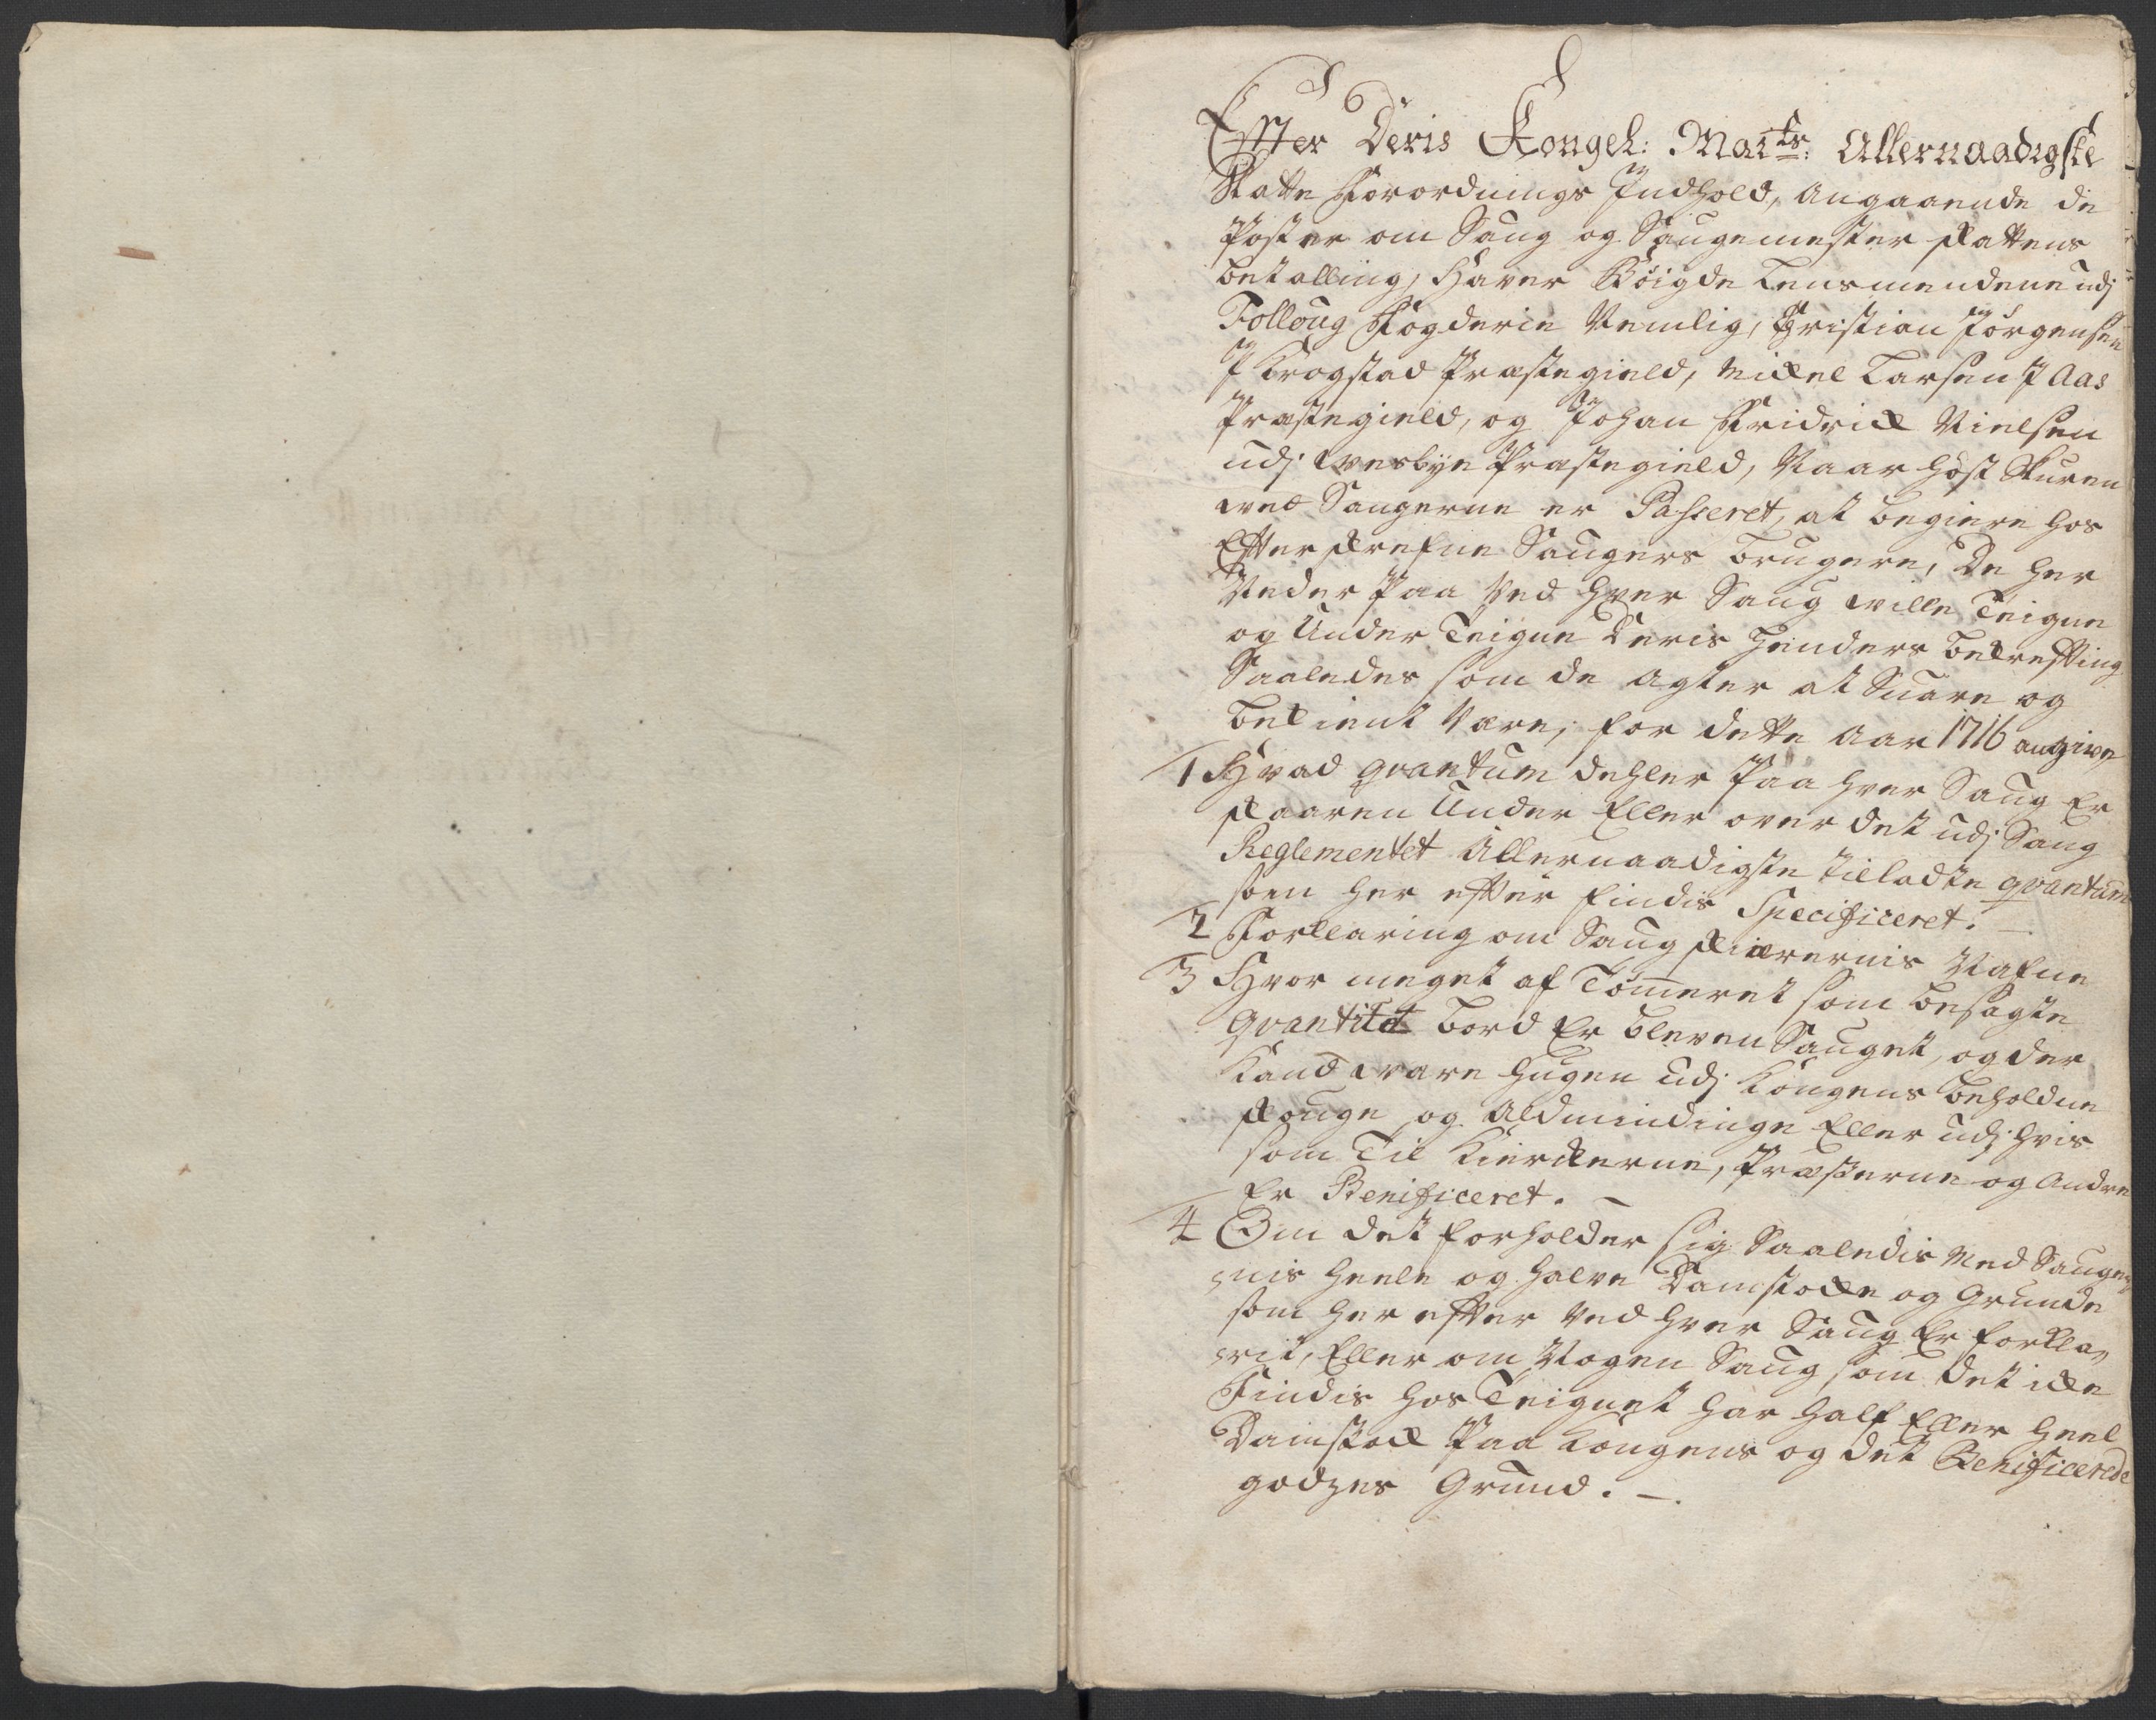 Effter Deris Kongel: Maits: Allernaadigste
Skatte Forordnings Indhold, angaaende de
Poster om Saug og Saugemester skattens
betalling, Haver Böigde Lensmendene udj
Folloug Fögderie Nemlig, Christian Jörgensen
J Krogstad Præstegield, Mickel Larsen J Aas
Præstegield, og Johan Fridrick Nielsen
udj Wesbÿe Præstegield, Naar höst Skuren
wed Saugerne er Passeret, at begiere hos
Effterskrefne Saugers brugere, De her
Neder Paa Ved hver Saug wille Teigne
og Under Teigne Deris Henders bekrefftning
Saaledes som de agter at Suare og
bekient Være, for dette Aar 1716 angive
1 Hvad qvantum dehler Paa hver Saug Er
skaaren Under Eller over det udj Saug
Reglementet Allernaadigste tilladte qvantum
som her effter findis Specificeret. —
2 Forklaring om Saug skiærernis Nafne
3 Hvor meget af Tömmeret som besagte
qvantitet bord Er bleven Sauget, og der
Kand være hugen udj Kongens beholdne
skouge og Aldmindinge Eller udj hvis
som Til Kierckerne, Præsterne og Andre
Er Benificeret. —
4 Om det forholder sig Saaledis Med Sauger¬
nis heele og halve Damstocke og Grunde
som her effter Ved hver Saug Er forkla¬
rit, Eller om Nogen Saug som det icke
Findis hos Teignet har half Eller heel
Damstock Paa Kongens og det Benificerede
godzes Grund. —.